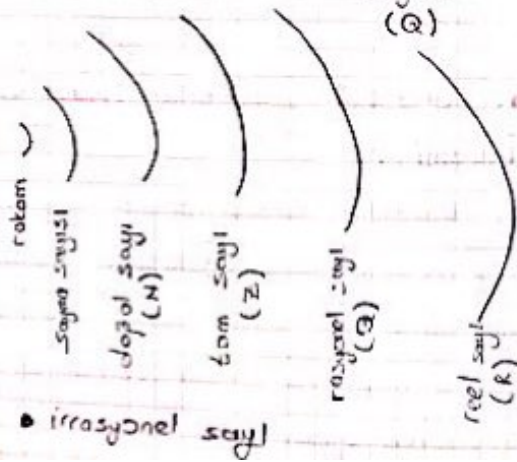 rakam
sayma sayısı
doğal sayı
(N)
tam sayı
(Z)
rasyonel sayı
(Q)
reel sayı
(R)
(Q)
• irrasyonel sayı